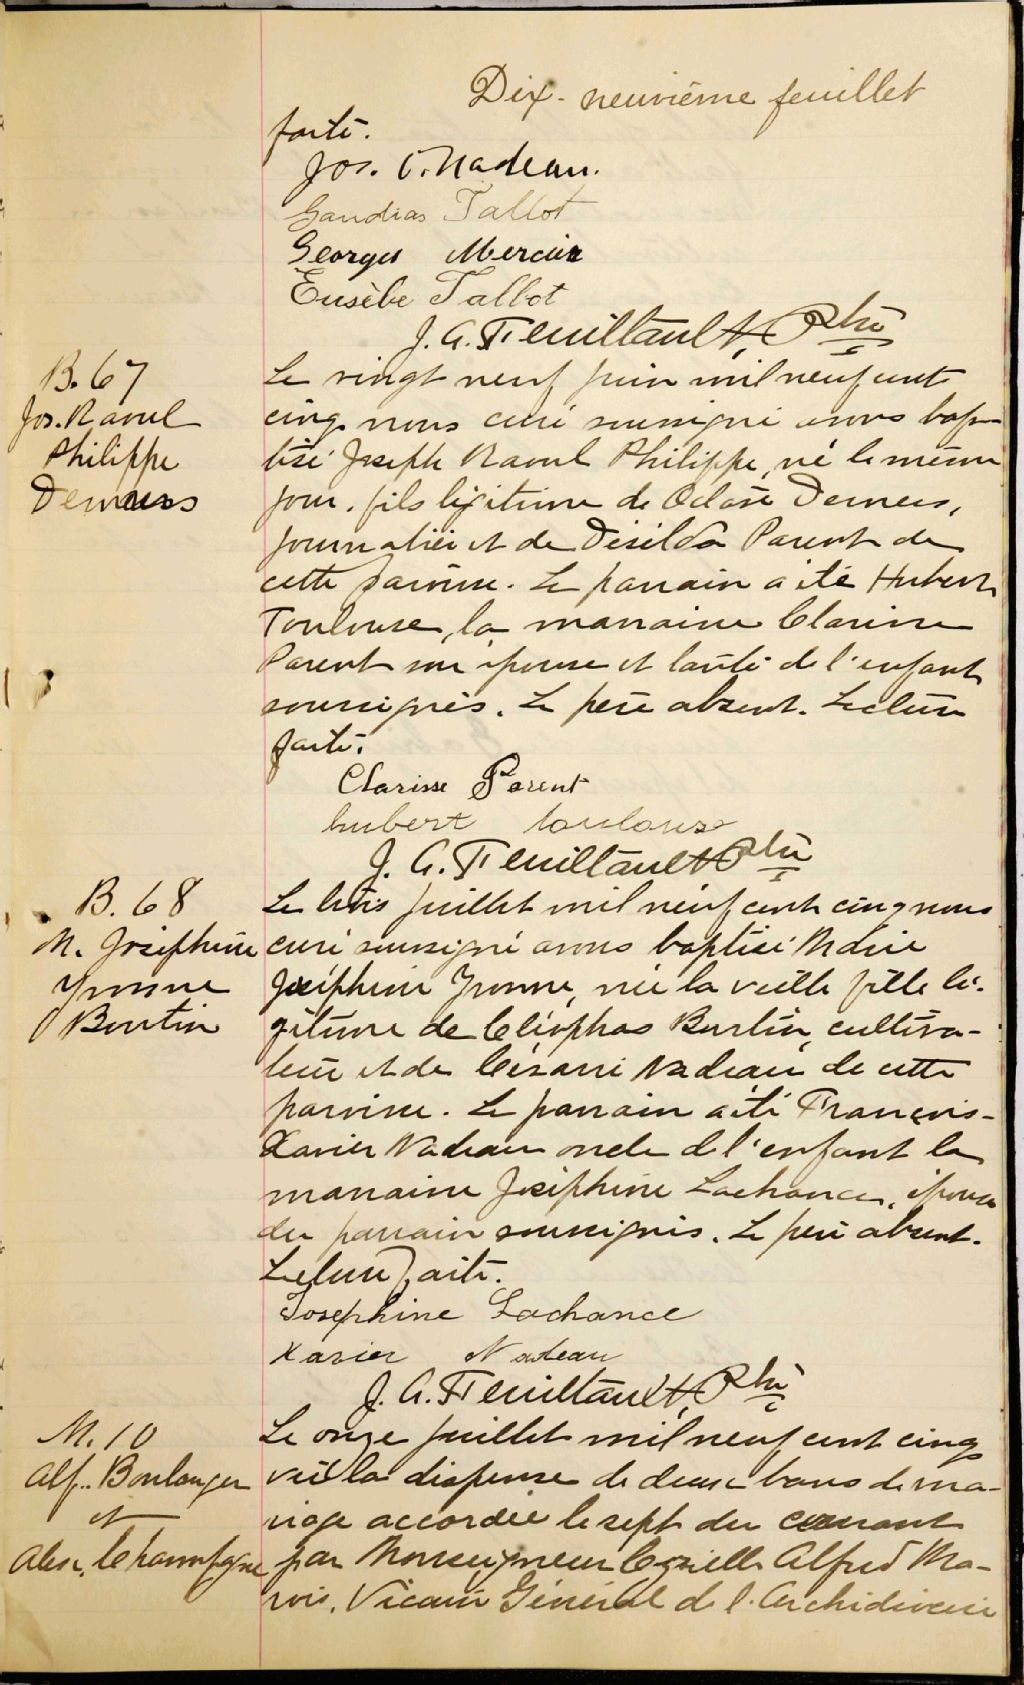 Dix-neuvième feuillet
faite.
Jos. C. Nadeau.
Gaudias Tallot
Georges Mercier
Eusèbe Tallot
J. A. Feuiltault, Ptre
B. 67
Jos. Raoul
Philippe
Demers
Le vingt neuf juin mil neuf cent
cinq nous curé soussigné avons bap-
tisé Joseph Raoul Philippe, né le même
jour, fils légitime de Odase Demers,
journalier et de Désilda Parent de
cette paroisse. Le parrain a été Hubert
Toulouse, la marraine Clarisse
Parent son épouse et tante de l'enfant
soussignés. Le père absent. Lecture
faite.
Clarisse Parent
hubert toulouse
J. A. Feuiltault Ptre
B. 68
M. Joséphine
Yvonne
Boutin
Le trois juillet mil neuf cent cinq nous
curé soussigné avons baptisé Marie
Joséphine Yvonne, née la veille fille lé-
gitime de Cléophas Boutin, cultiva-
teur et de Césarie Nadeau de cette
paroisse. Le parrain a été François-
Xavier Nadeau oncle de l'enfant la
marraine Joséphine Lachance, épouse
du parrain soussignés. Le père absent.
Lecture faite.
Josephine Lachance
Xavier Nadeau
J. A. Feuiltault, Ptre
M. 10
Alf. Boulanger
et
Alex. Champagne
Le onze juillet mil neuf cent cinq
vu la dispense de deux bans de ma-
riage accordée le sept du courant
par Monseigneur Cyrille Alfred Ma-
rois, Vicaire Général de l'Archidiocèse